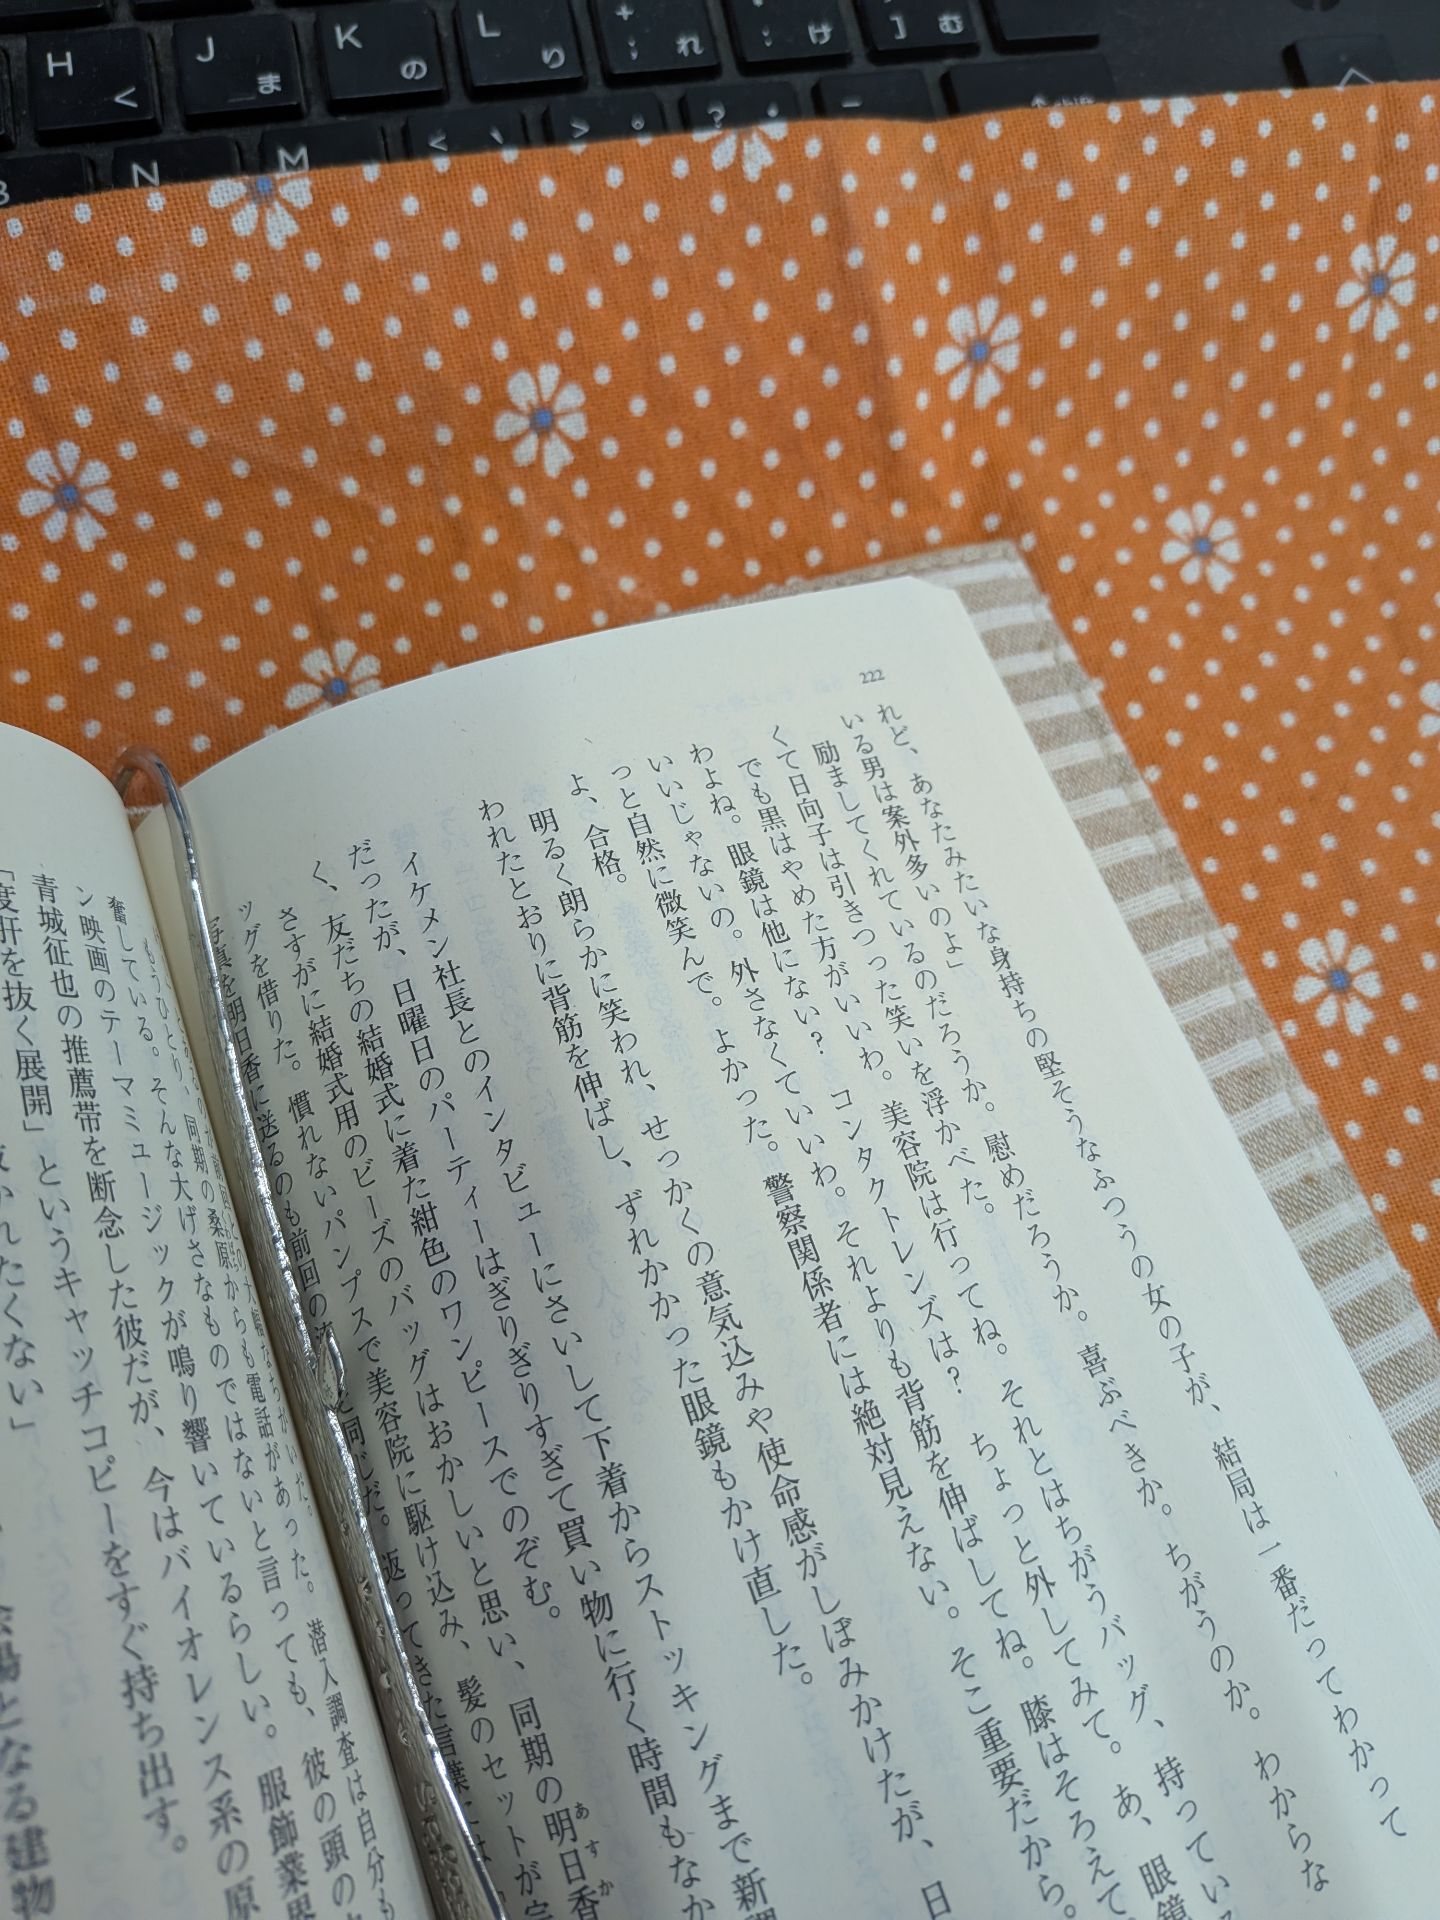 H
く
J
ま
K
の
L
り
+
;
れ
*
:
け
}
]
む
N
M
<
、
>
。
?
・
shift
B
222
れど、あなたみたいな身持ちの堅そうなふつうの女の子が、結局は一番だってわかって
いる男は案外多いのよ」
励ましてくれているのだろうか。慰めだろうか。喜ぶべきか。ちがうのか。わからな
くて日向子は引きつった笑いを浮かべた。
でも黒はやめた方がいいわ。美容院は行ってね。それとはちがうバッグ、持っている
わよね。眼鏡は他にない? コンタクトレンズは? ちょっと外してみて。あ、眼鏡
いいじゃないの。外さなくていいわ。それよりも背筋を伸ばしてね。膝はそろえて
っと自然に微笑んで。よかった。警察関係者には絶対見えない。そこ重要だから。
よ、合格。
明るく朗らかに笑われ、せっかくの意気込みや使命感がしぼみかけたが、日
われたとおりに背筋を伸ばし、ずれかかった眼鏡もかけ直した。
イケメン社長とのインタビューにさいして下着からストッキングまで新調
だったが、日曜日のパーティーはぎりぎりすぎて買い物に行く時間もなか
く、友だちの結婚式に着た紺色のワンピースでのぞむ。
さすがに結婚式用のビーズのバッグはおかしいと思い、同期の明日香
あすか
ッグを借りた。慣れないパンプスで美容院に駆け込み、髪のセットが完
写真を明日香に送るのも前回の
と同じだ。返ってきた言葉には
もうひとり、同期の桑原からも電話があった。潜入調査は自分も
奮している。そんな大げさなものではないと言っても、彼の頭の中
ン映画のテーマミュージックが鳴り響いているらしい。服飾業界
青城征也の推薦帯を断念した彼だが、今はバイオレンス系の原
「度肝を抜く展開」というキャッチコピーをすぐ持ち出す。
れたくない」
となる建物